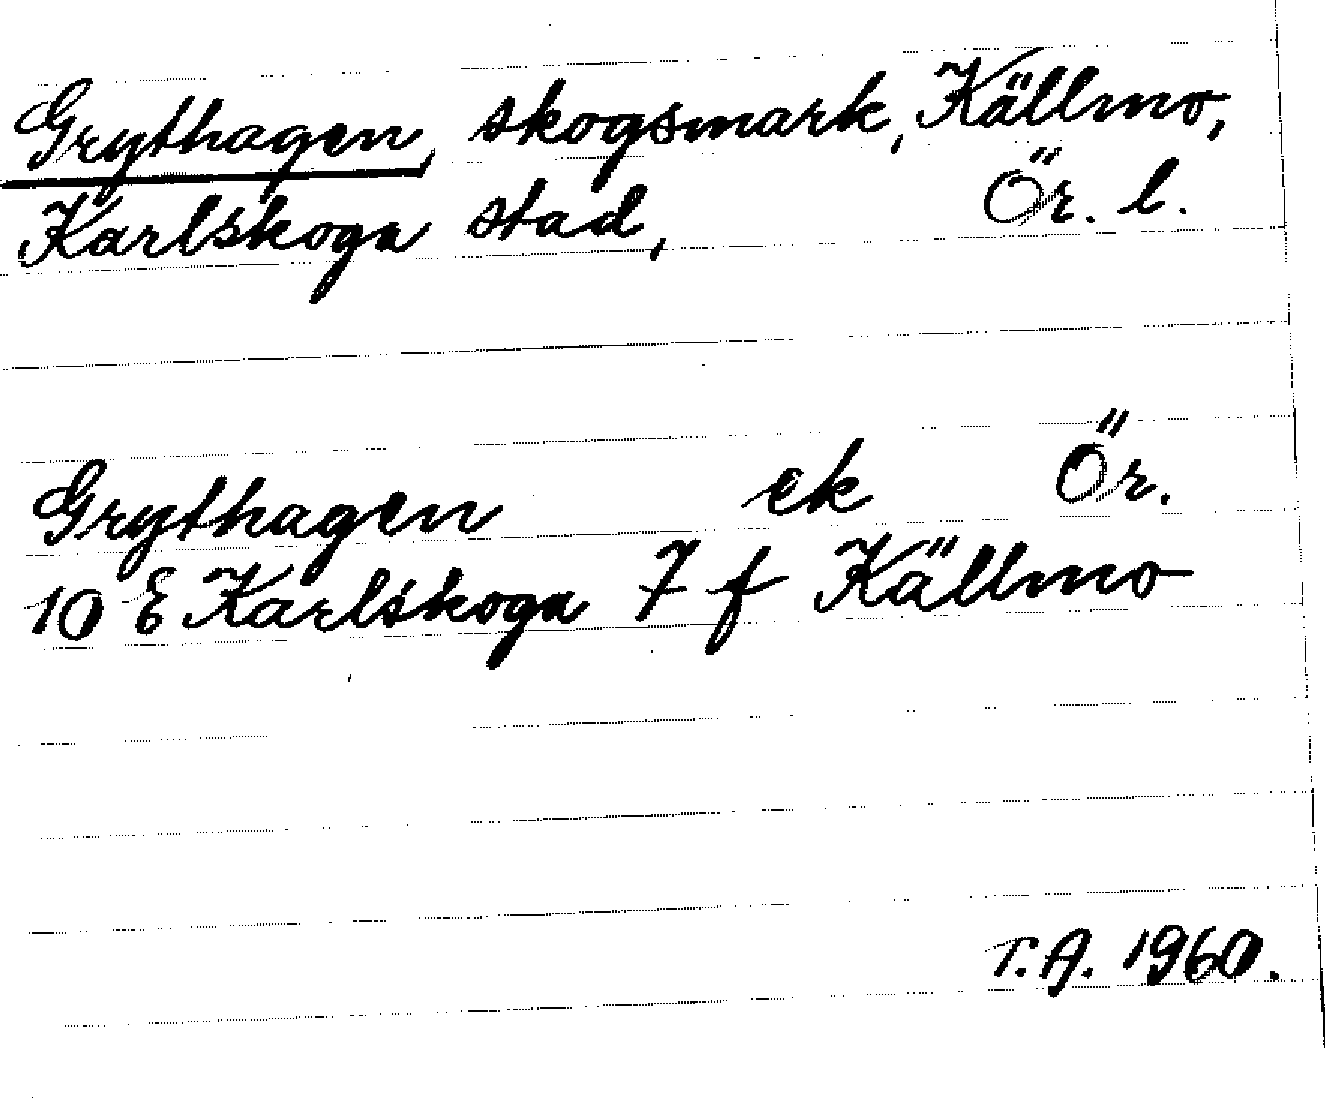 Grythagen, skogsmark, Källmo,
Karlskoga stad, Ör. l.
Grythagen ek Ör.
10 E Karlskoga 7 f Källmo
T.A. 1960.